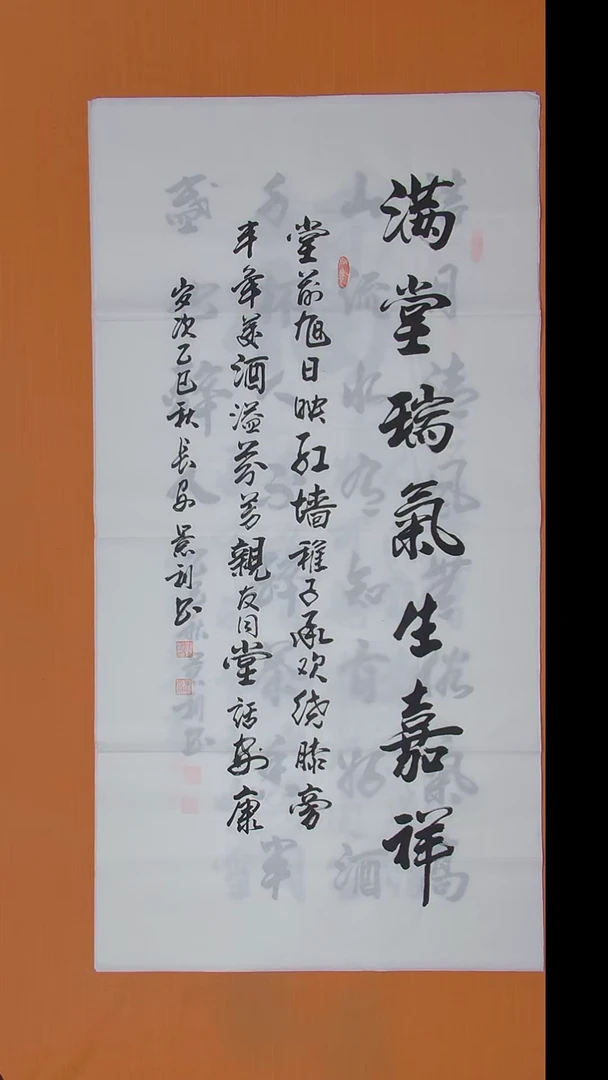 满堂瑞氣生嘉祥
堂前旭日映红墙稚子承欢绕膝旁
丰年美酒溢芬芳親友同堂话安康
岁次乙巳秋长安景利书